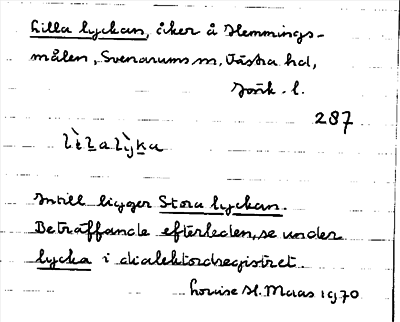 Lilla lyckan, åker å Hemmings-
målen, Svenarums sn, Västra hd,
Jönk. l.
287
Intill ligger Stora lyckan.
Beträffande efterleden, se under
lycka i dialektordregistret.
Louise H. Maas 1970